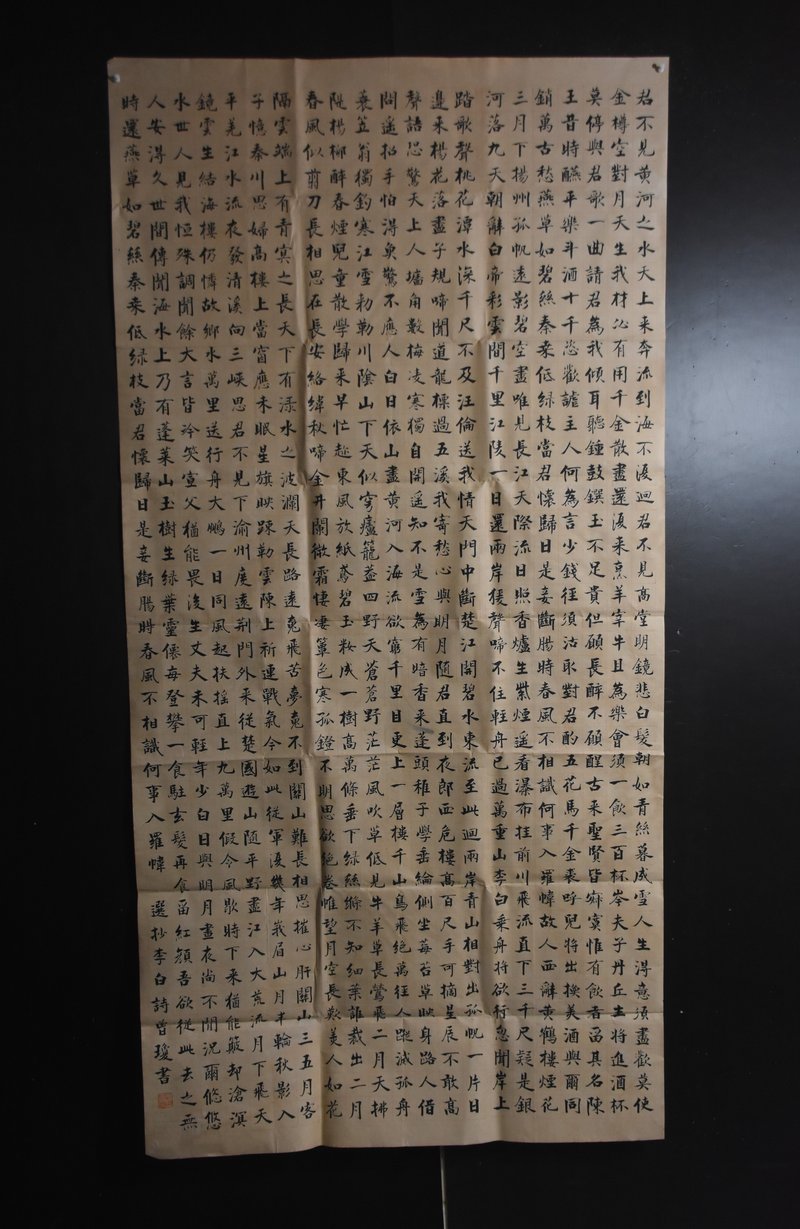 君不見黃河之水天上来奔流到海不復迴君不見高堂明鏡悲白髮朝如青絲暮成雪人生得意須盡歡莫使
金樽空對月天生我材必有用千金散盡還復来烹羊宰牛且為樂會須一飲三百杯岑夫子丹丘生將進酒杯
莫停與君歌一曲請君為我傾耳聽鍾鼓饌玉不足貴但願長醉不願醒古来聖賢皆寂寞惟有飲者留其名陳
王昔時醼平樂斗酒十千恣歡謔主人何為言少錢徑須沽取對君酌五花馬千金裘呼兒將出換美酒與爾同
銷萬古愁燕草如碧絲秦桒低緑枝當君懷歸日是妾斷腸時春風不相識何事入羅幃故人西辭黃鶴樓煙花
三月下揚州孤帆遠影碧空盡唯見長江天際流日照香爐生紫煙遥看瀑布挂前川飛流直下三千尺疑是銀
河落九天朝辭白帝彩雲間千里江陵一日還兩岸猨聲啼不住輕舟已過萬重山李白乘舟將欲行忽聞岸上
踏歌聲桃花潭水深千尺不及汪倫送我情天門中斷楚江開碧水東流至此迴兩岸青山相對出孤帆一片日
邊来楊花落盡子規啼聞道龍標過五溪我寄愁心與明月隨君直到夜郎西危樓高百尺手可摘星辰不敢高
聲語恐驚天上人墻角數梅凌寒獨自開遥知不是雪為有暗香来蓬頭稚子學垂綸側坐莓苔草映身路人借
問遥招手怕得魚驚不應人白日依山盡黃河入海流欲窮千里目更上一層樓千山鳥飛絶萬徑人蹤滅孤舟
蓑笠翁獨釣寒江雪勑勒川陰山下天似穹廬籠蓋四野天蒼蒼野茫茫風吹草低見牛羊草長鶯飛二月天拂
隄楊柳醉春煙兒童散學歸来早忙趁東風放紙鳶碧玉妝成一樹高萬條垂下緑絲縧不知細葉誰裁出二月
春風似剪刀長相思在長安絡緯秋啼金井闌微霜悽淒簟色寒孤鐙不明思欲絶卷帷望月空長歎美人如花
隔雲端上有青冥之長天下有淥水之波瀾天長路遠魂飛苦夢魂不到關山難長相思摧心肝關山三五月客
子憶秦川思婦高樓上當窗應未眠星旗映疎勒雲陳上祈連戰氣今如此從軍復幾年峨眉山月半輪秋影入
平羌江水流夜發清溪向三峽思君不見下渝州度遠荆門外来從楚國遊山隨平野盡江入大荒流月下飛天
鏡雲生結海樓仍憐故鄉水萬里送行舟大鵬一日同風起扶摇直上九萬里假令風歇時下来猶能簸却滄溟
水世人見我恒殊調聞餘大言皆冷笑宣父猶能畏後生丈夫未可輕年少白日與明月晝夜尚不閒況爾悠悠
人安得久世間傳聞海水上乃有蓬萊山玉樹生緑葉靈僊每登攀一食駐玄髮再食留紅顏吾欲從此去之無
時還燕草如碧絲秦桒低緑枝當君懷歸日是妾斷腸時春風不相識何事入羅幃 選抄李白詩曾瓊書